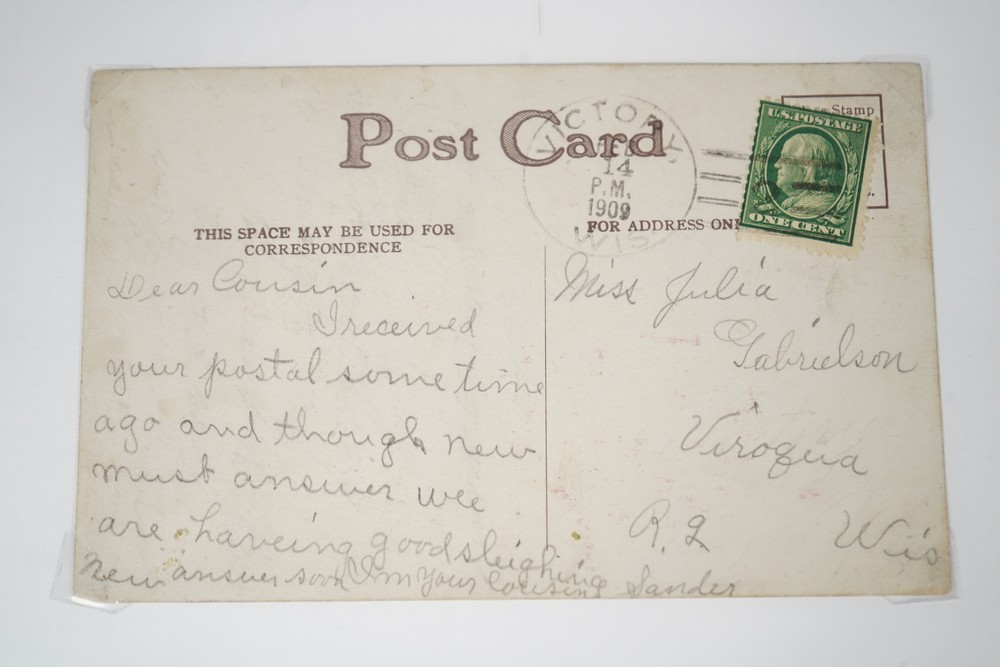 Post Card
VICTORY,
14
P.M.
1909
WIS.
Stamp
U.S. POSTAGE
ONE CENT
THIS SPACE MAY BE USED FOR
CORRESPONDENCE
FOR ADDRESS
Dear Cousin
I received
your postal some time
ago and though new
must answer wee
are haveing good sleighing
new answer soon I'm your cousing Sander
Miss Julia
Gabrielson
Viroqua
R. 2
Wis